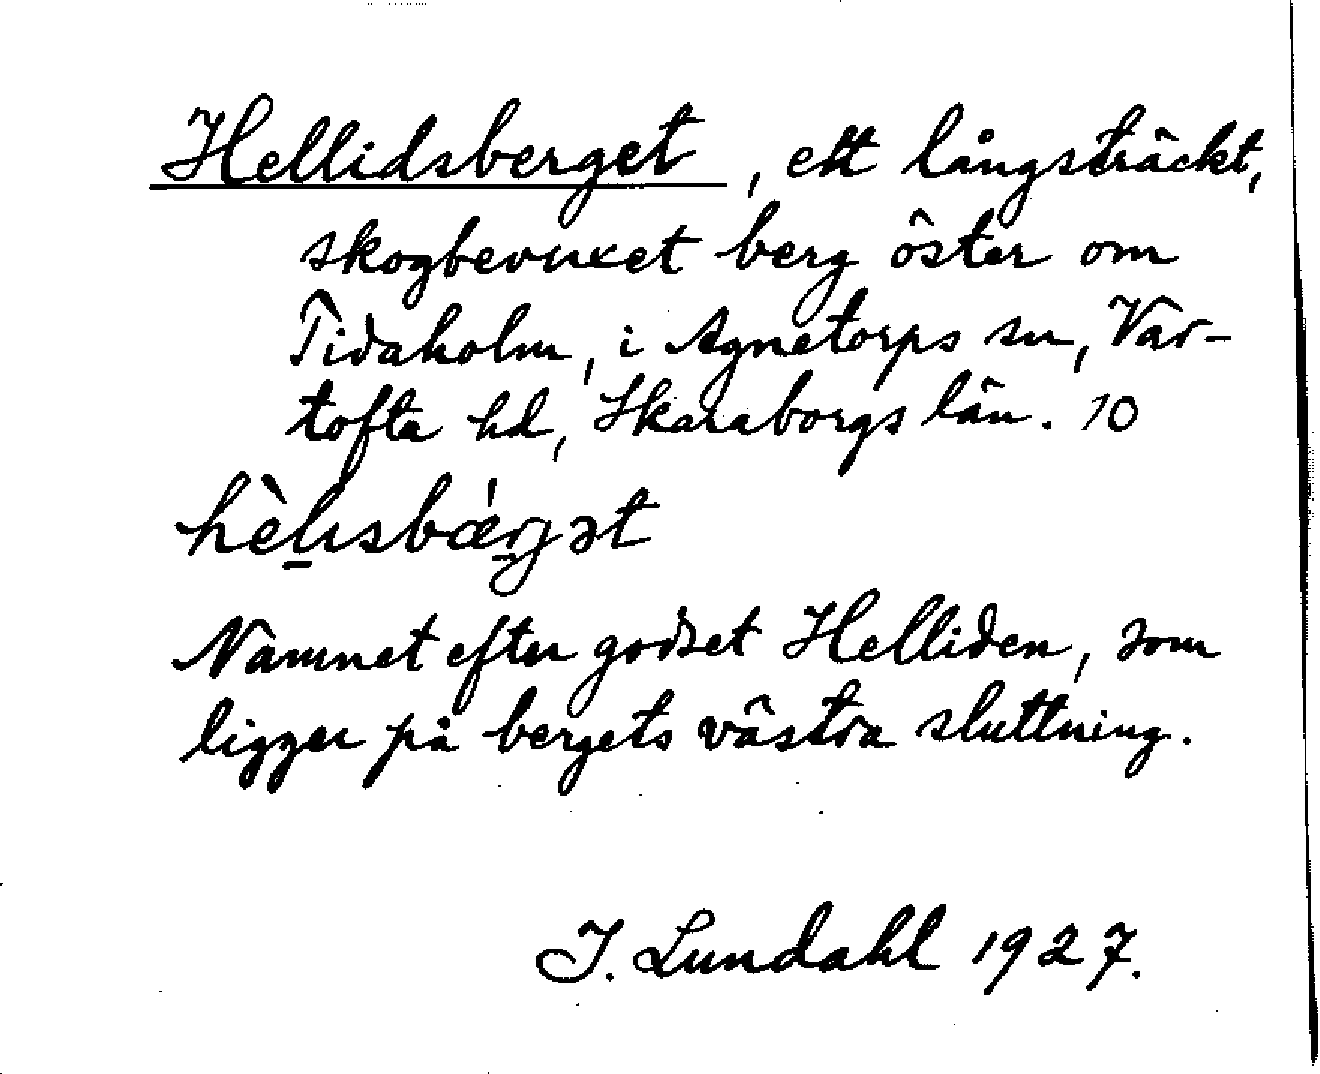 Hellidsberget, ett långsträckt,
skogbevuxet berg öster om
Tidaholm, i Agnetorps sn, Var-
tofta hd, Skaraborgs län. 10
hèl̠ısbǽr̠gət
Namnet efter godset Helliden, som
ligger på bergets västra sluttning.
I. Lundahl 1927.